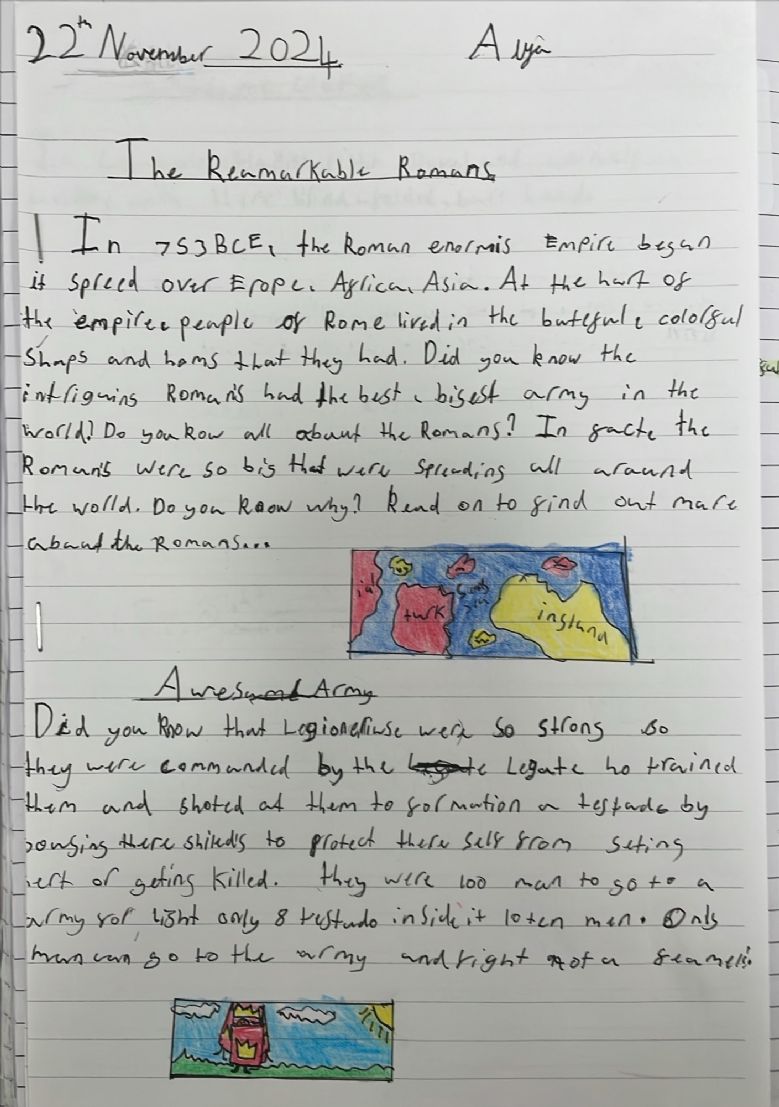 22th November 2024 Alya
The Reamarkable Romans
In 753 BCE, the Roman enormis Empire began
it spreed over Erope, Africa, Asia. At the hart of
the empiree peaple of Rome lived in the buteful, colorful
shaps and homs that they had. Did you know the
intriguins Roman's had the best, bigest army in the
world? Do you kow all abaut the Romans? In facte the
Roman's were so big that were spreading all araund
the wolld. Do you know why? Read on to find out mare
abaut the Romans...
turk
ingland
Awesome Army
Did you know that Legioneriuse were so strong so
they were commanded by the Legate ho trained
them and shoted at them to formation a testado by
there shileds to protect there self from geting
or geting killed. they were 100 man to go to a
army for light only 8 testudo inside it 10 ten men. Only
man can go to the army and fight not a feamel.